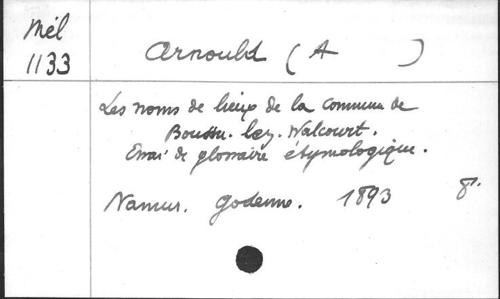 Mél
1133
Arnould (A )
Les noms de lieux de la commune de
Boussu. lez. Walcourt.
Essai de glossaire étymologique.
Namur. Godenne. 1893 8°.